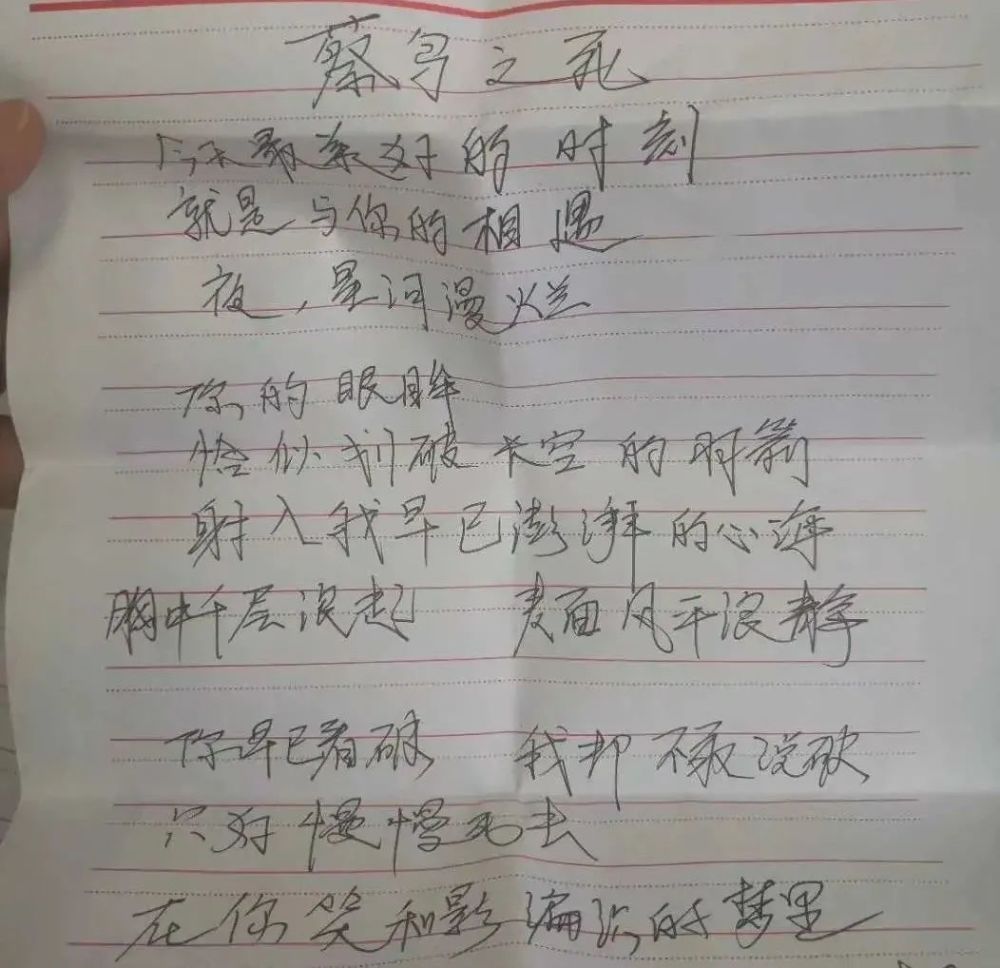 蔡鸟之死
今天最美好的时刻
就是与你的相遇
夜,星河漫烂
你的眼眸
恰似划破长空的羽箭
射入我早已澎湃的心海
胸中千层浪起 表面风平浪静
你早已看破 我却不敢说破
只好慢慢死去
在你笑和影 的梦里